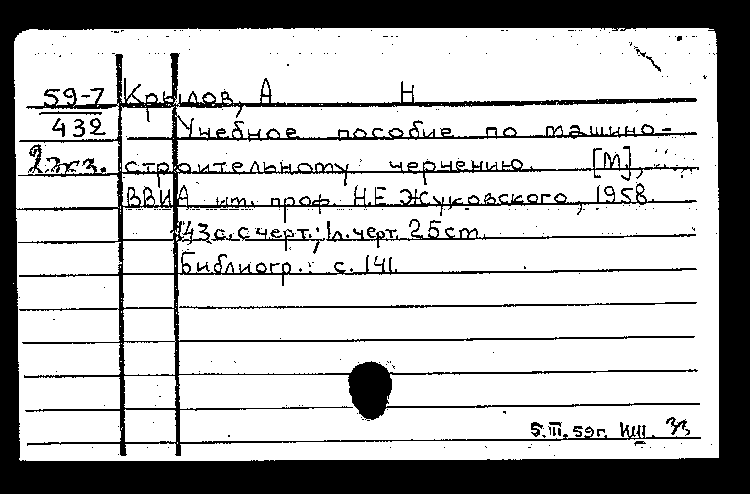 59-7 Крылов, А Н
432 Учебное пособие по машино-
2 экз. строительному черчению. [М],
ВВИА им. проф. Н.Е Жуковского, 1958.
143 с. с черт.; 1 л. черт. 25 см.
Библиогр.: с. 141.
5.III.59г.